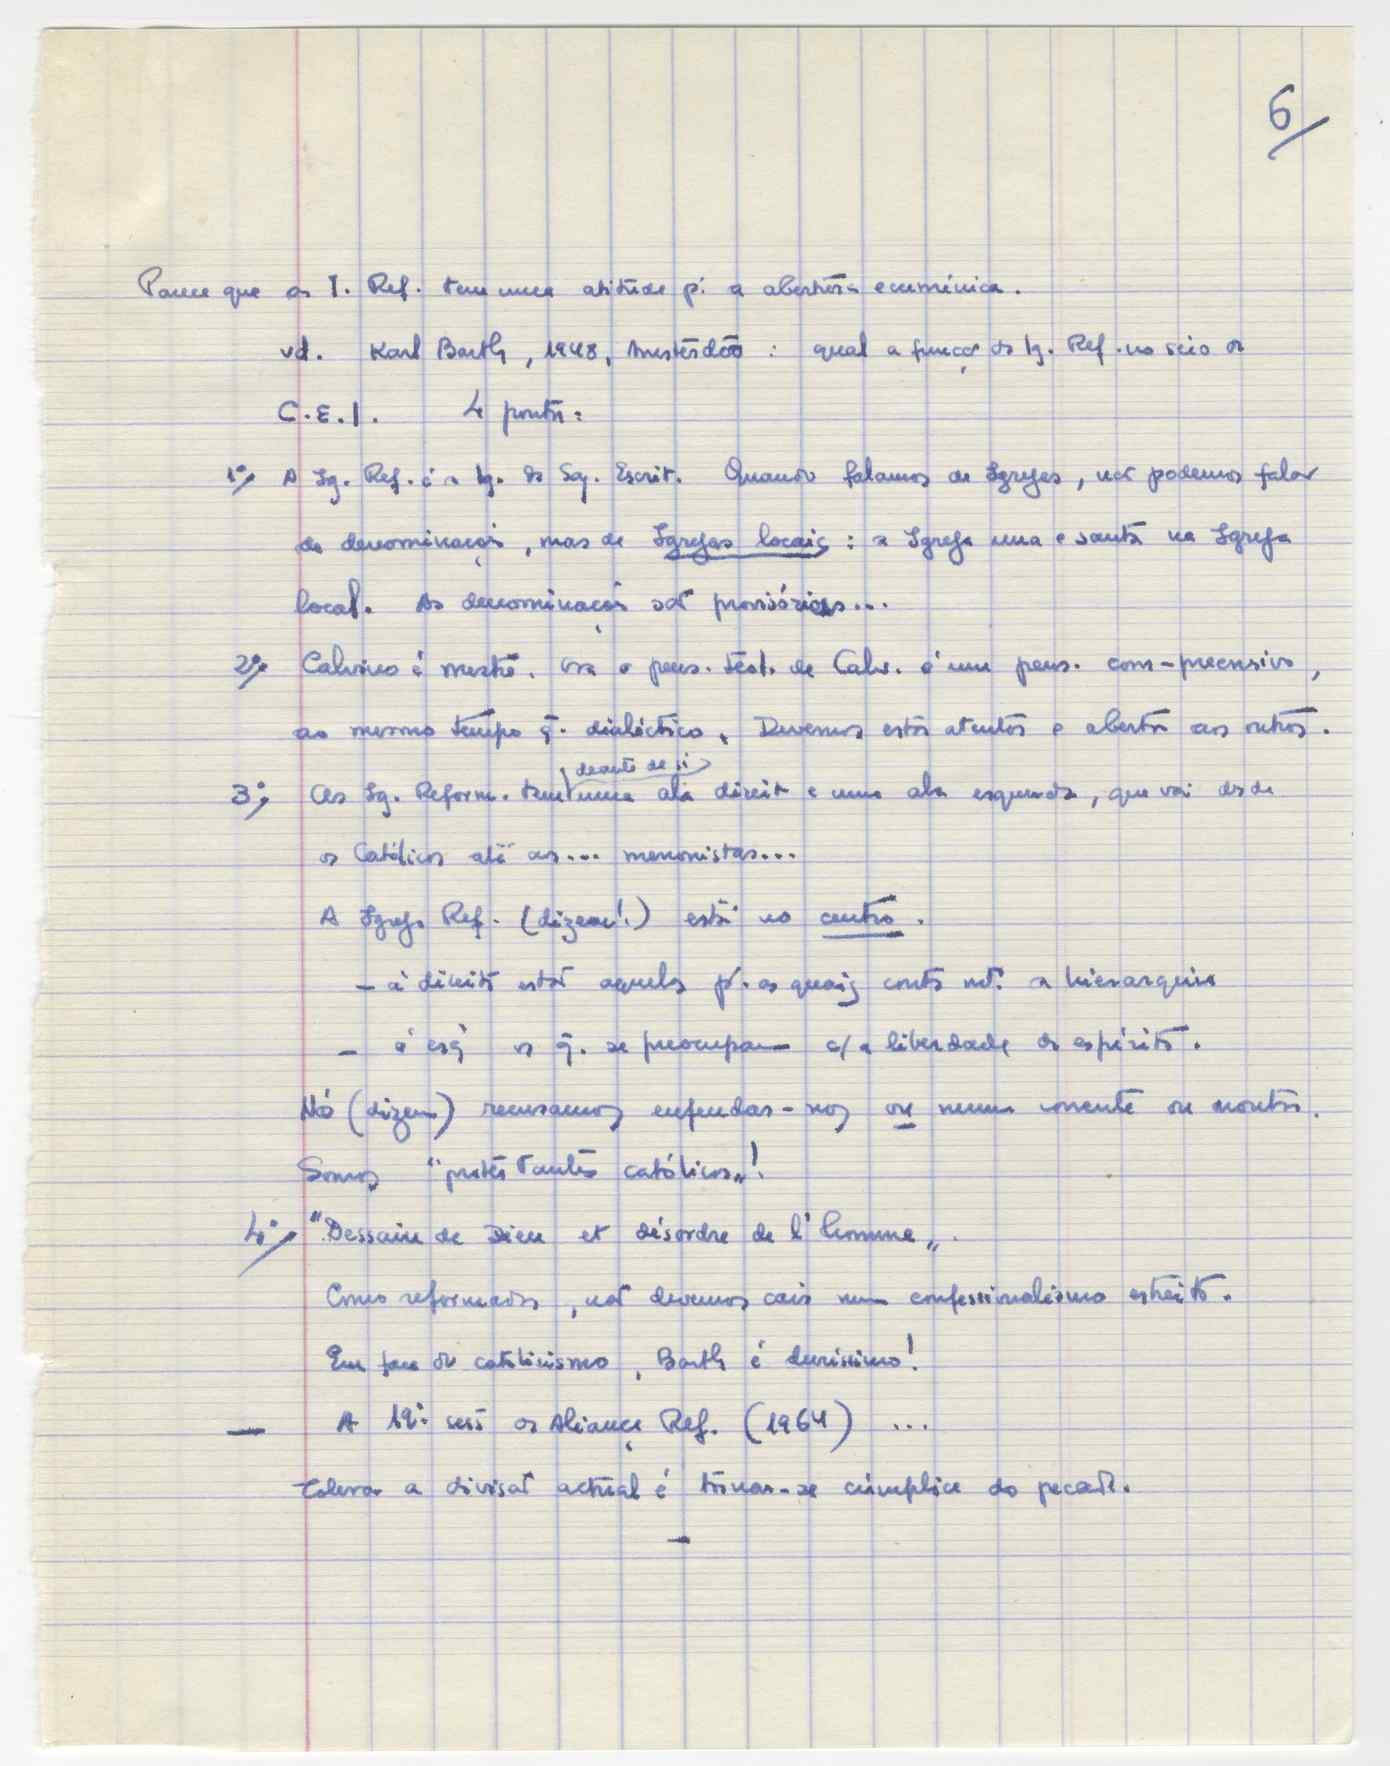 6/
Parece que as I. Ref. tem uma atitude p. a abertura ecuménica.
vd. Karl Barth, 1948, Amsterdão: qual a função da Ig. Ref. no seio do
C.E.I. 4 pontos:
1º/ A Ig. Ref. é a Ig. da Sg. Escrit. Quando falamos de Igrejas, não podemos falar
de denominações, mas de Igrejas locais: a Igreja una e santa na Igreja
local. As denominações são provisórias...
2º/ Calvino é mestre. Ora o pens. teol. de Calv. é um pens. com-preensivo,
ao mesmo tempo q. dialéctico. Devemos estar atentos e abertos aos outros.
deante de si
3º/ As Ig. Reform. tem uma ala direita e uma ala esquerda, que vai desde
os Católicos até aos... menonistas...
A Igreja Ref. (dizem!) está no centro.
- à direita estão aqueles p. os quais conta mt. a hierarquia
- à esq os q. se preocupam c/ a liberdade do espírito.
Nós (dizem) recusamos enfeudar-nos ou numa corrente ou noutra.
Somos "protestantes católicos"!
4º/ "Dessain de Dieu et désordre de l'homme".
Como reformados, não devemos cair num confessionalismo estreito.
Em face do catolicismo, Barth é duríssimo!
— A 19ª sess da Aliança Ref. (1964) ...
Tolerar a divisão actual é tornar-se cúmplice do pecado.
—